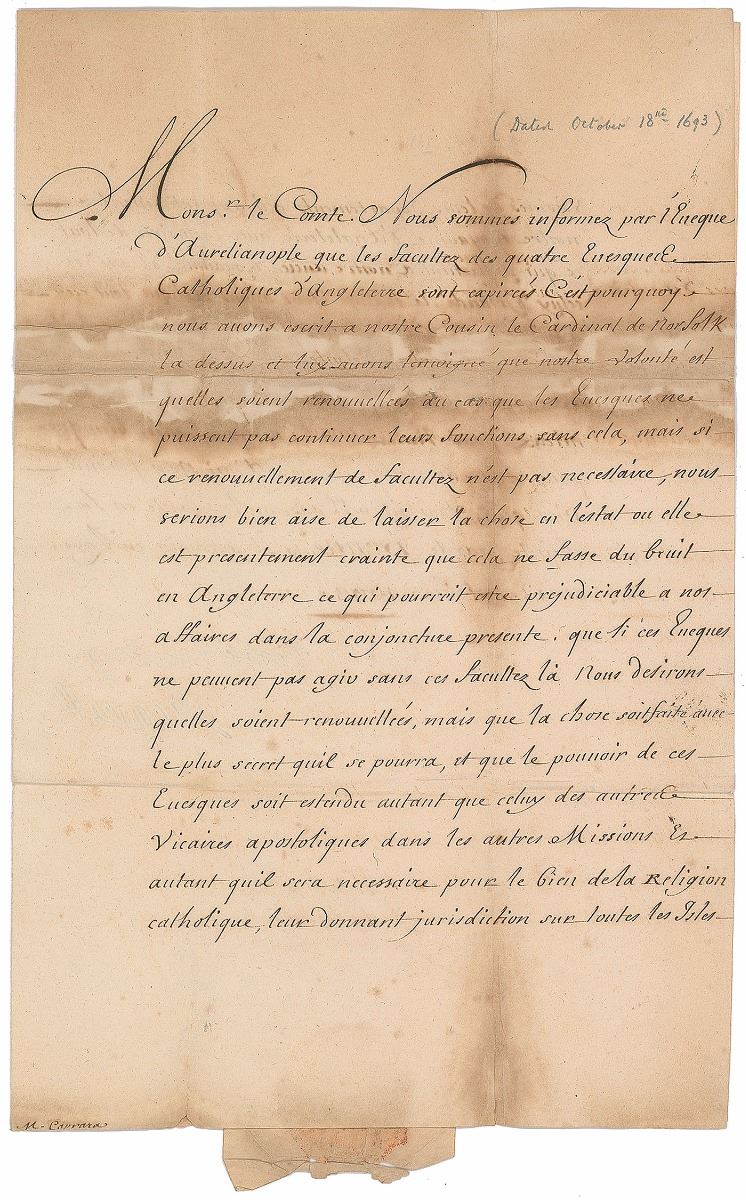 (Dated October 18nd 1693)
Mons.r le Comte. Nous sommes informez par l'Eueque
d'Aurelianople que les facultez des quatre Euesques
Catholiques d'Angleterre sont expireés C'est pourquoy
nous auons escrit a nostre Cousin le Cardinal de Norfolk
la dessus et luy auons temoigné que nostre volonté est
quelles soient renouuelleés au cas que les Euesques ne
puissent pas continuer leurs fonctions sans cela, mais si
ce renouuellement de facultez n'est pas necessaire, nous
serions bien aise de laisser la chose en l'éstat ou elle
est presentement crainte que cela ne fasse du bruit
en Angleterre ce qui pourroit estre prejudiciable a nos
affaires dans la conjoncture presente. que si ces Eueques
ne peuuent pas agir sans ces facultez là Nous desirons
quelles soient renouuelleés, mais que la chose soit faite auec
le plus secret quil se pourra, et que le pouuoir de ces
Euesques soit estendu autant que celuy des autres
Vicaires apostoliques dans les autres Missions Et
autant quil sera necessaire pour le bien de la Religion
catholique, leur donnant jurisdiction sur toutes les Isles
M. Carrara